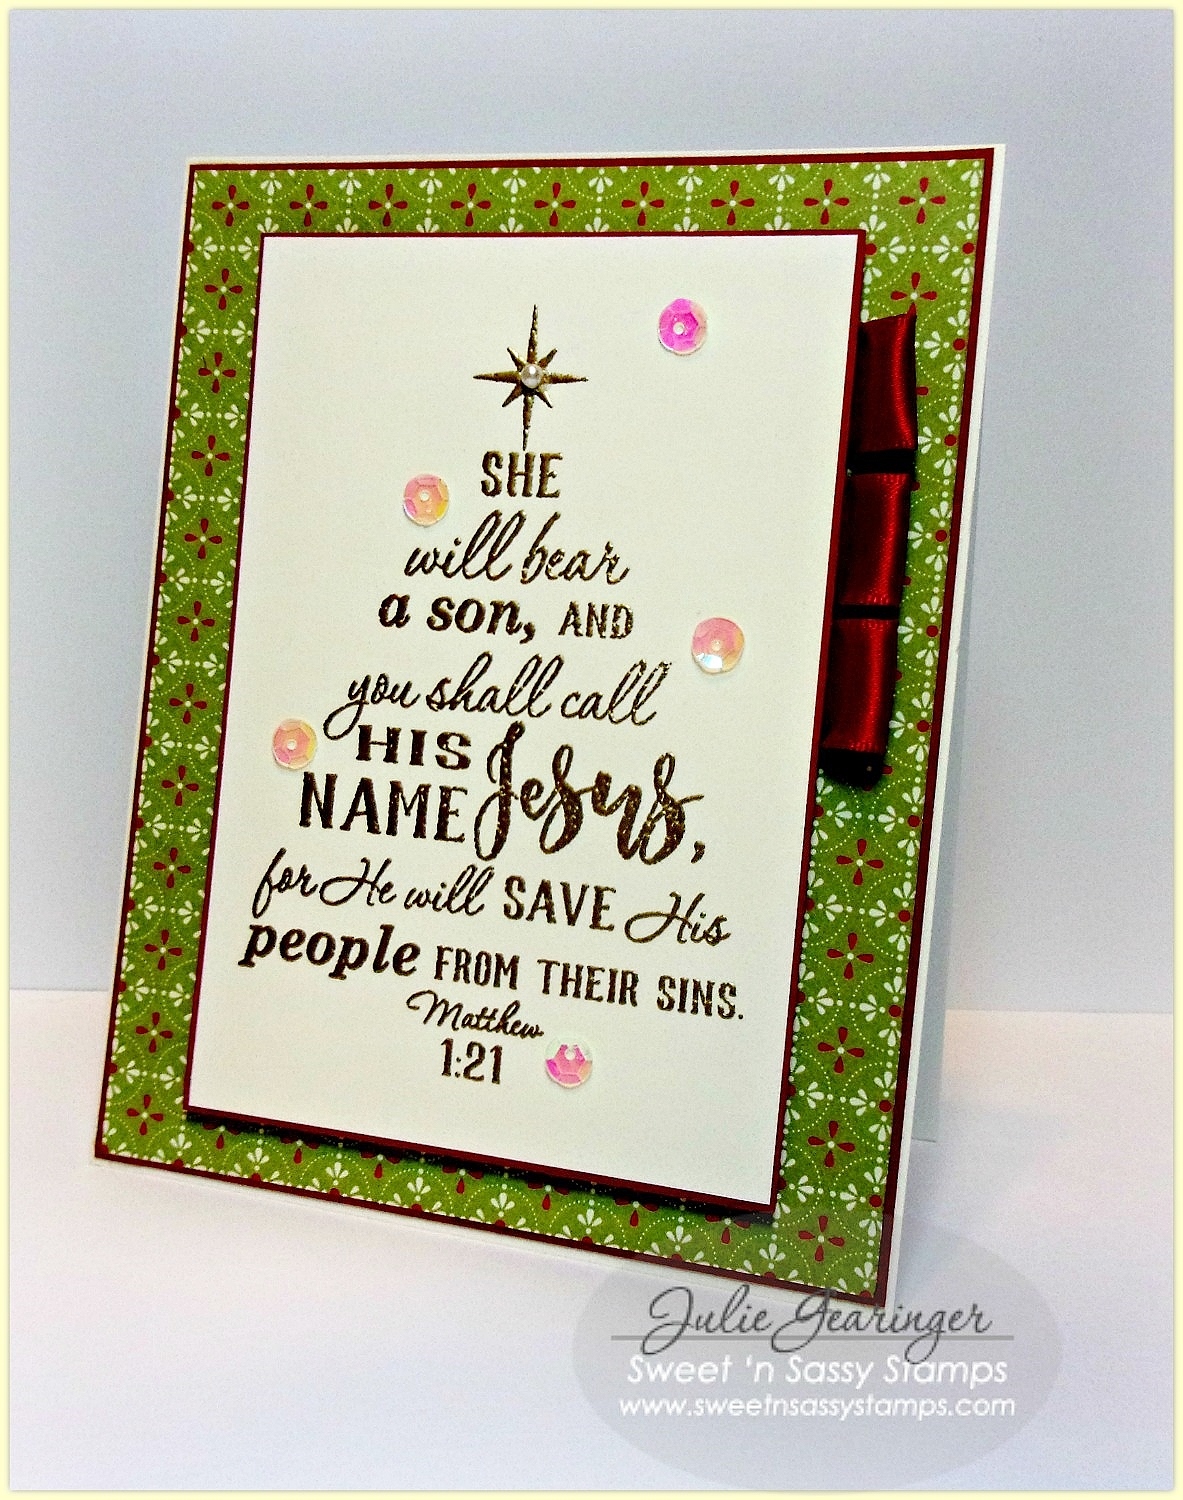 SHE
will bear
a son, AND
you shall call
HIS
NAME Jesus,
for He will SAVE His
people FROM THEIR SINS.
Matthew
1:21
Julie Gearinger
Sweet 'n Sassy Stamps
www.sweetnsassystamps.com